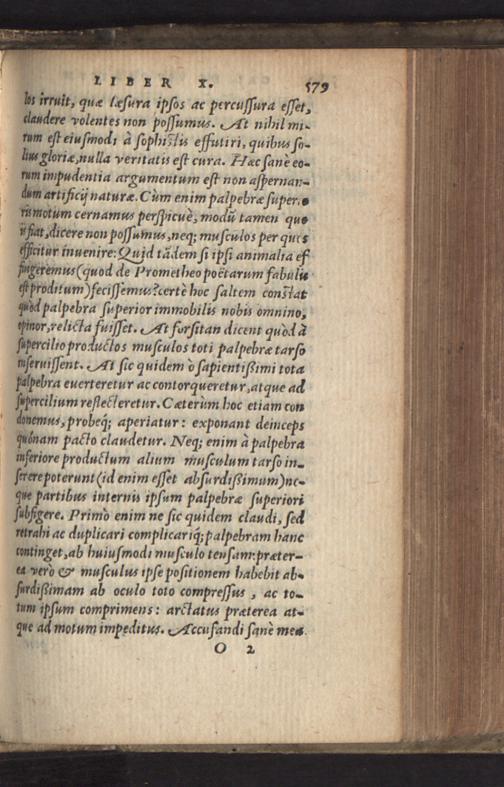 LIBER X. 579
los irruit, quæ læsura ipsos ac percussura esset,
claudere volentes non possumus. At nihil mi-
rum est eiusmodi à sophistis effutiri, quibus so-
lius gloriæ, nulla veritatis est cura. Hæc sanè eo-
rum impudentia argumentum est non aspernan-
dum artificij naturæ. Cùm enim palpebræ super.
rū motum cernamus perspicuè, modū tamen quo
ij fiat, dicere non possumus, neq; musculos per quos
efficitur inuenire: Quid tādem si ipsi animalia ef
fingeremus (quod de Prometheo poëtarum fabulis
est proditum) fecissemus? certè hoc saltem constat
quòd palpebra superior immobilis nobis omnino,
opinor, relicta fuisset. At forsitan dicent quòd à
supercilio productos musculos toti palpebræ tarso
inseruissent. At sic quidem ò sapientißimi tota
palpebra euerteretur ac contorqueretur, atque ad
supercilium reflecteretur. Cæterùm hoc etiam con
donemus, probeq; aperiatur: exponant deinceps
quónam pacto claudetur. Neq; enim à palpebra
inferiore productum alium musculum tarso in-
serere poterunt (id enim esset absurdißimum) ne-
que partibus internis ipsum palpebræ superiori
subfigere. Primò enim ne sic quidem claudi, sed
retrahi ac duplicari complicariq; palpebram hanc
continget, ab huiusmodi musculo tensam: præter-
ea verò & musculus ipse positionem habebit ab-
surdißimam ab oculo toto compressus, ac to-
tum ipsum comprimens: arctatus præterea at-
que ad motum impeditus. Accusandi sanè mea
O 2